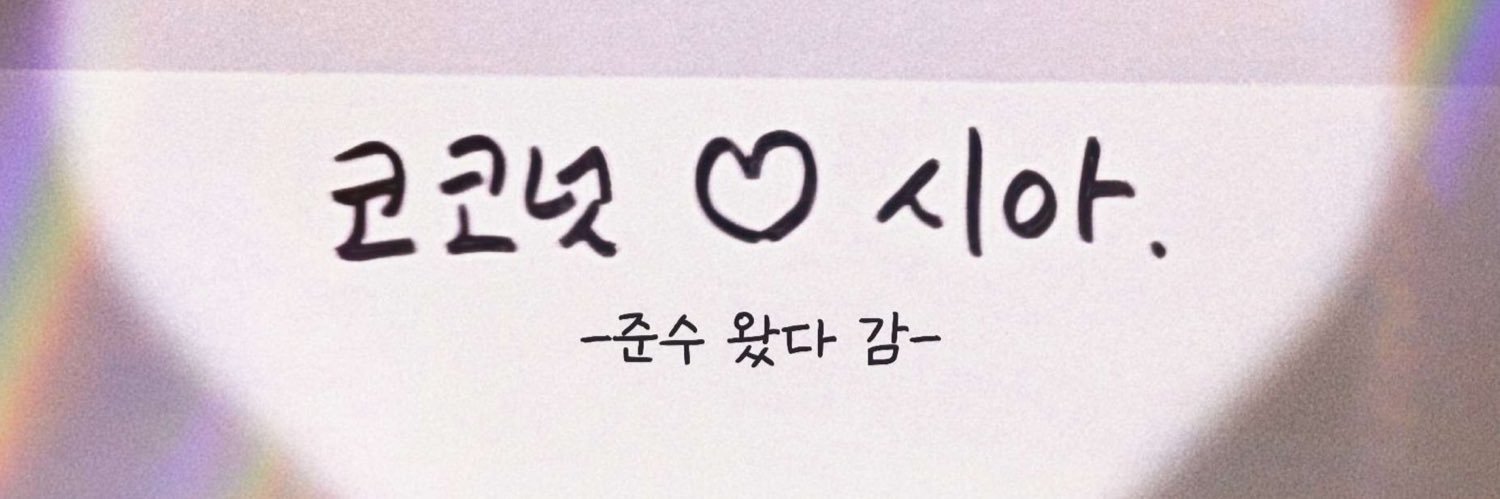 코코넛 ♡ 시아.
-준수 왔다 감-